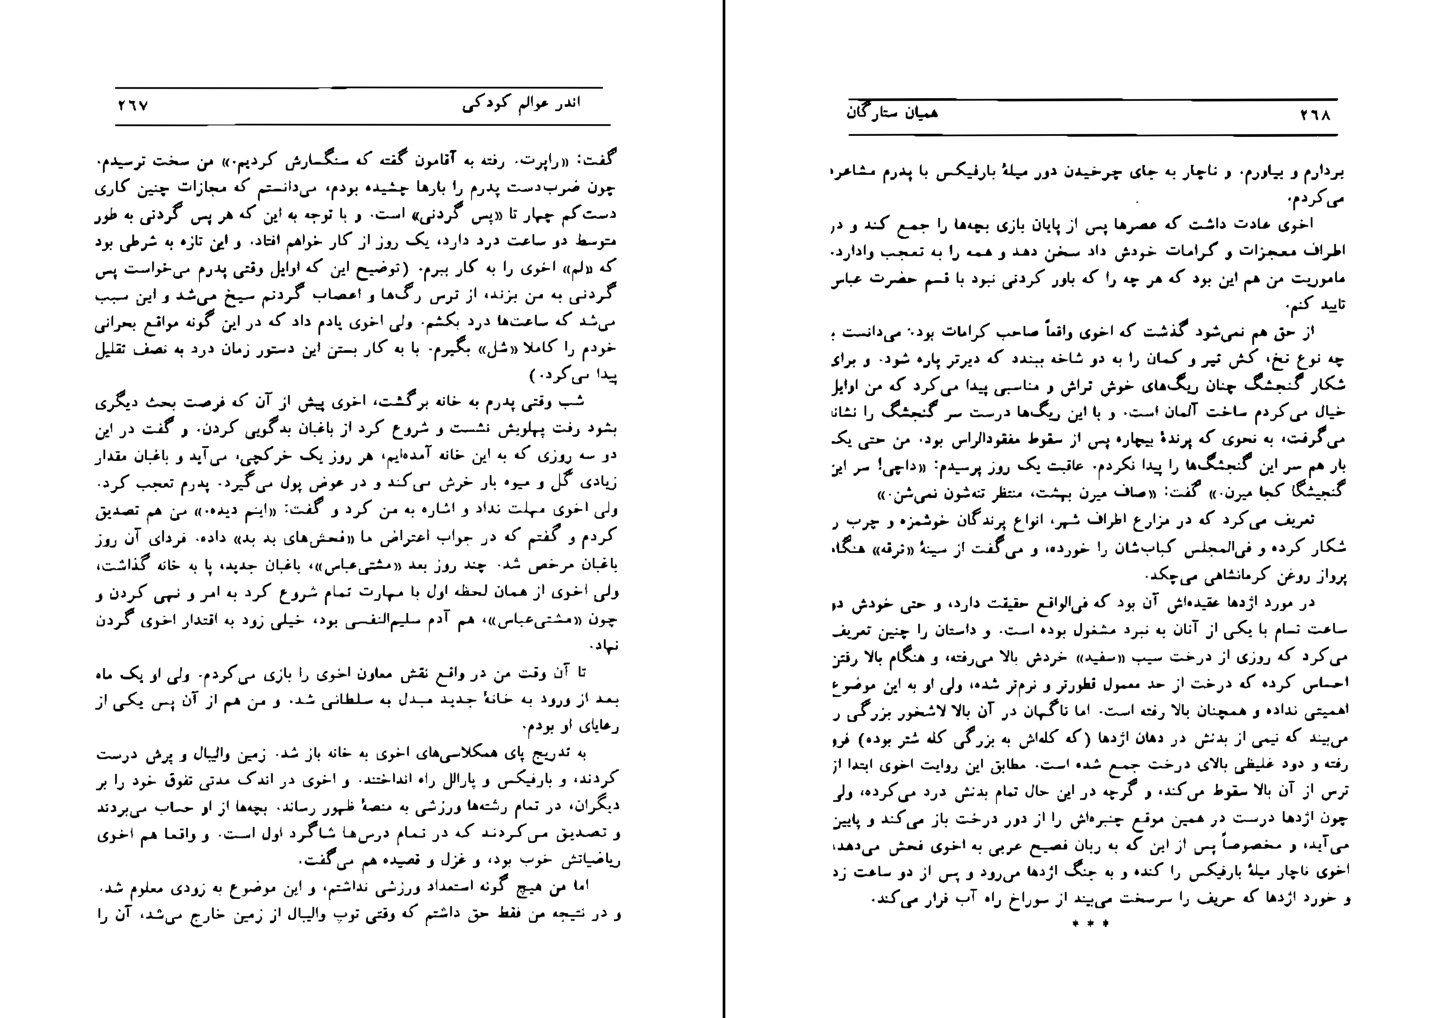 اندر عوالم کودکی ۲٦۷
گفت: «راپرت. رفته به آقامون گفته که سنگسارش کردیم.» من سخت ترسیدم.
چون ضرب‌دست پدرم را بارها چشیده بودم، می‌دانستم که مجازات چنین کاری
دست‌کم چهار تا «پس گردنی» است. و با توجه به این که هر پس گردنی به طور
متوسط دو ساعت درد دارد، یک روز از کار خواهم افتاد. و این تازه به شرطی بود
که «لم» اخوی را به کار ببرم. (توضیح این که اوایل وقتی پدرم می‌خواست پس
گردنی به من بزند، از ترس رگ‌ها و اعصاب گردنم سیخ می‌شد و این سبب
می‌شد که ساعت‌ها درد بکشم. ولی اخوی یادم داد که در این گونه مواقع بحرانی
خودم را کاملا «شل» بگیرم. با به کار بستن این دستور زمان درد به نصف تقلیل
پیدا می‌کرد.)
شب وقتی پدرم به خانه برگشت، اخوی پیش از آن که فرصت بحث دیگری
بشود رفت پهلویش نشست و شروع کرد از باغبان بدگویی کردن. و گفت در این
دو سه روزی که به این خانه آمده‌ایم، هر روز یک خرکچی، می‌آید و باغبان مقدار
زیادی گل و میوه بار خرش می‌کند و در عوض پول می‌گیرد. پدرم تعجب کرد.
ولی اخوی مهلت نداد و اشاره به من کرد و گفت: «اینم دیده.» من هم تصدیق
کردم و گفتم که در جواب اعتراض ما «فحش‌های بد بد» داده. فردای آن روز
باغبان مرخص شد. چند روز بعد «مشتی‌عباس»، باغبان جدید، پا به خانه گذاشت،
ولی اخوی از همان لحظه اول با مهارت تمام شروع کرد به امر و نهی کردن و
چون «مشتی‌عباس»، هم آدم سلیم‌النفسی بود، خیلی زود به اقتدار اخوی گردن
نهاد.
تا آن وقت من در واقع نقش معاون اخوی را بازی می‌کردم. ولی او یک ماه
بعد از ورود به خانهٔ جدید مبدل به سلطانی شد. و من هم از آن پس یکی از
رعایای او بودم.
به تدریج پای همکلاسی‌های اخوی به خانه باز شد. زمین والیبال و پرش درست
کردند، و بارفیکس و پارالل راه انداختند. و اخوی در اندک مدتی تفوق خود را بر
دیگران، در تمام رشته‌ها ورزشی به منصهٔ ظهور رساند. بچه‌ها از او حساب می‌بردند
و تصدیق می‌کردند که در تمام درس‌ها شاگرد اول است. و واقعا هم اخوی
ریاضیاتش خوب بود، و غزل و قصیده هم می‌گفت.
اما من هیچ گونه استعداد ورزشی نداشتم، و این موضوع به زودی معلوم شد.
و در نتیجه من فقط حق داشتم که وقتی توپ والیبال از زمین خارج می‌شد، آن را
۲٦۸ همیان ستارگان
بردارم و بیاورم. و ناچار به جای چرخیدن دور میلهٔ بارفیکس با پدرم مشاعره
می‌کردم.
اخوی عادت داشت که عصرها پس از پایان بازی بچه‌ها را جمع کند و در
اطراف معجزات و کرامات خودش داد سخن دهد و همه را به تعجب وادارد.
ماموریت من هم این بود که هر چه را که باور کردنی نبود با قسم حضرت عباس
تایید کنم.
از حق هم نمی‌شود گذشت که اخوی واقعاً صاحب کرامات بود. می‌دانست با
چه نوع نخ، کش تیر و کمان را به دو شاخه ببندد که دیرتر پاره شود. و برای
شکار گنجشگ چنان ریگ‌های خوش تراش و مناسبی پیدا می‌کرد که من اوایل
خیال می‌کردم ساخت آلمان است. و با این ریگ‌ها درست سر گنجشگ را نشانه
می‌گرفت، به نحوی که پرندهٔ بیچاره پس از سقوط مفقودالراس بود. من حتی یک
بار هم سر این گنجشگ‌ها را پیدا نکردم. عاقبت یک روز پرسیدم: «داچی! سر این
گنجیشگا کجا میرن.» گفت: «صاف میرن بهشت، منتظر تنه‌شون نمی‌شن.»
تعریف می‌کرد که در مزارع اطراف شهر، انواع پرندگان خوشمزه و چرب را
شکار کرده و فی‌المجلس کباب‌شان را خورده، و می‌گفت از سینهٔ «ترقه» هنگام
پرواز روغن کرمانشاهی می‌چکد.
در مورد اژدها عقیده‌اش آن بود که فی‌الواقع حقیقت دارد، و حتی خودش دو
ساعت تمام با یکی از آنان به نبرد مشغول بوده است. و داستان را چنین تعریف
می‌کرد که روزی از درخت سیب «سفید» خردش بالا می‌رفته، و هنگام بالا رفتن
احساس کرده که درخت از حد معمول قطورتر و نرم‌تر شده، ولی او به این موضوع
اهمیتی نداده و همچنان بالا رفته است. اما ناگهان در آن بالا لاشخور بزرگی را
می‌بیند که نیمی از بدنش در دهان اژدها (که کله‌اش به بزرگی کله شتر بوده) فرو
رفته و دود غلیظی بالای درخت جمع شده است. مطابق این روایت اخوی ابتدا از
ترس از آن بالا سقوط می‌کند، و گرچه در این حال تمام بدنش درد می‌کرده، ولی
چون اژدها درست در همین موقع چنبره‌اش را از دور درخت باز می‌کند و پایین
می‌آید، و مخصوصاً پس از این که به زبان فصیح عربی به اخوی فحش می‌دهد،
اخوی ناچار میلهٔ بارفیکس را کنده و به جنگ اژدها می‌رود و پس از دو ساعت زد
و خورد اژدها که حریف را سرسخت می‌بیند از سوراخ راه آب فرار می‌کند.
* * *